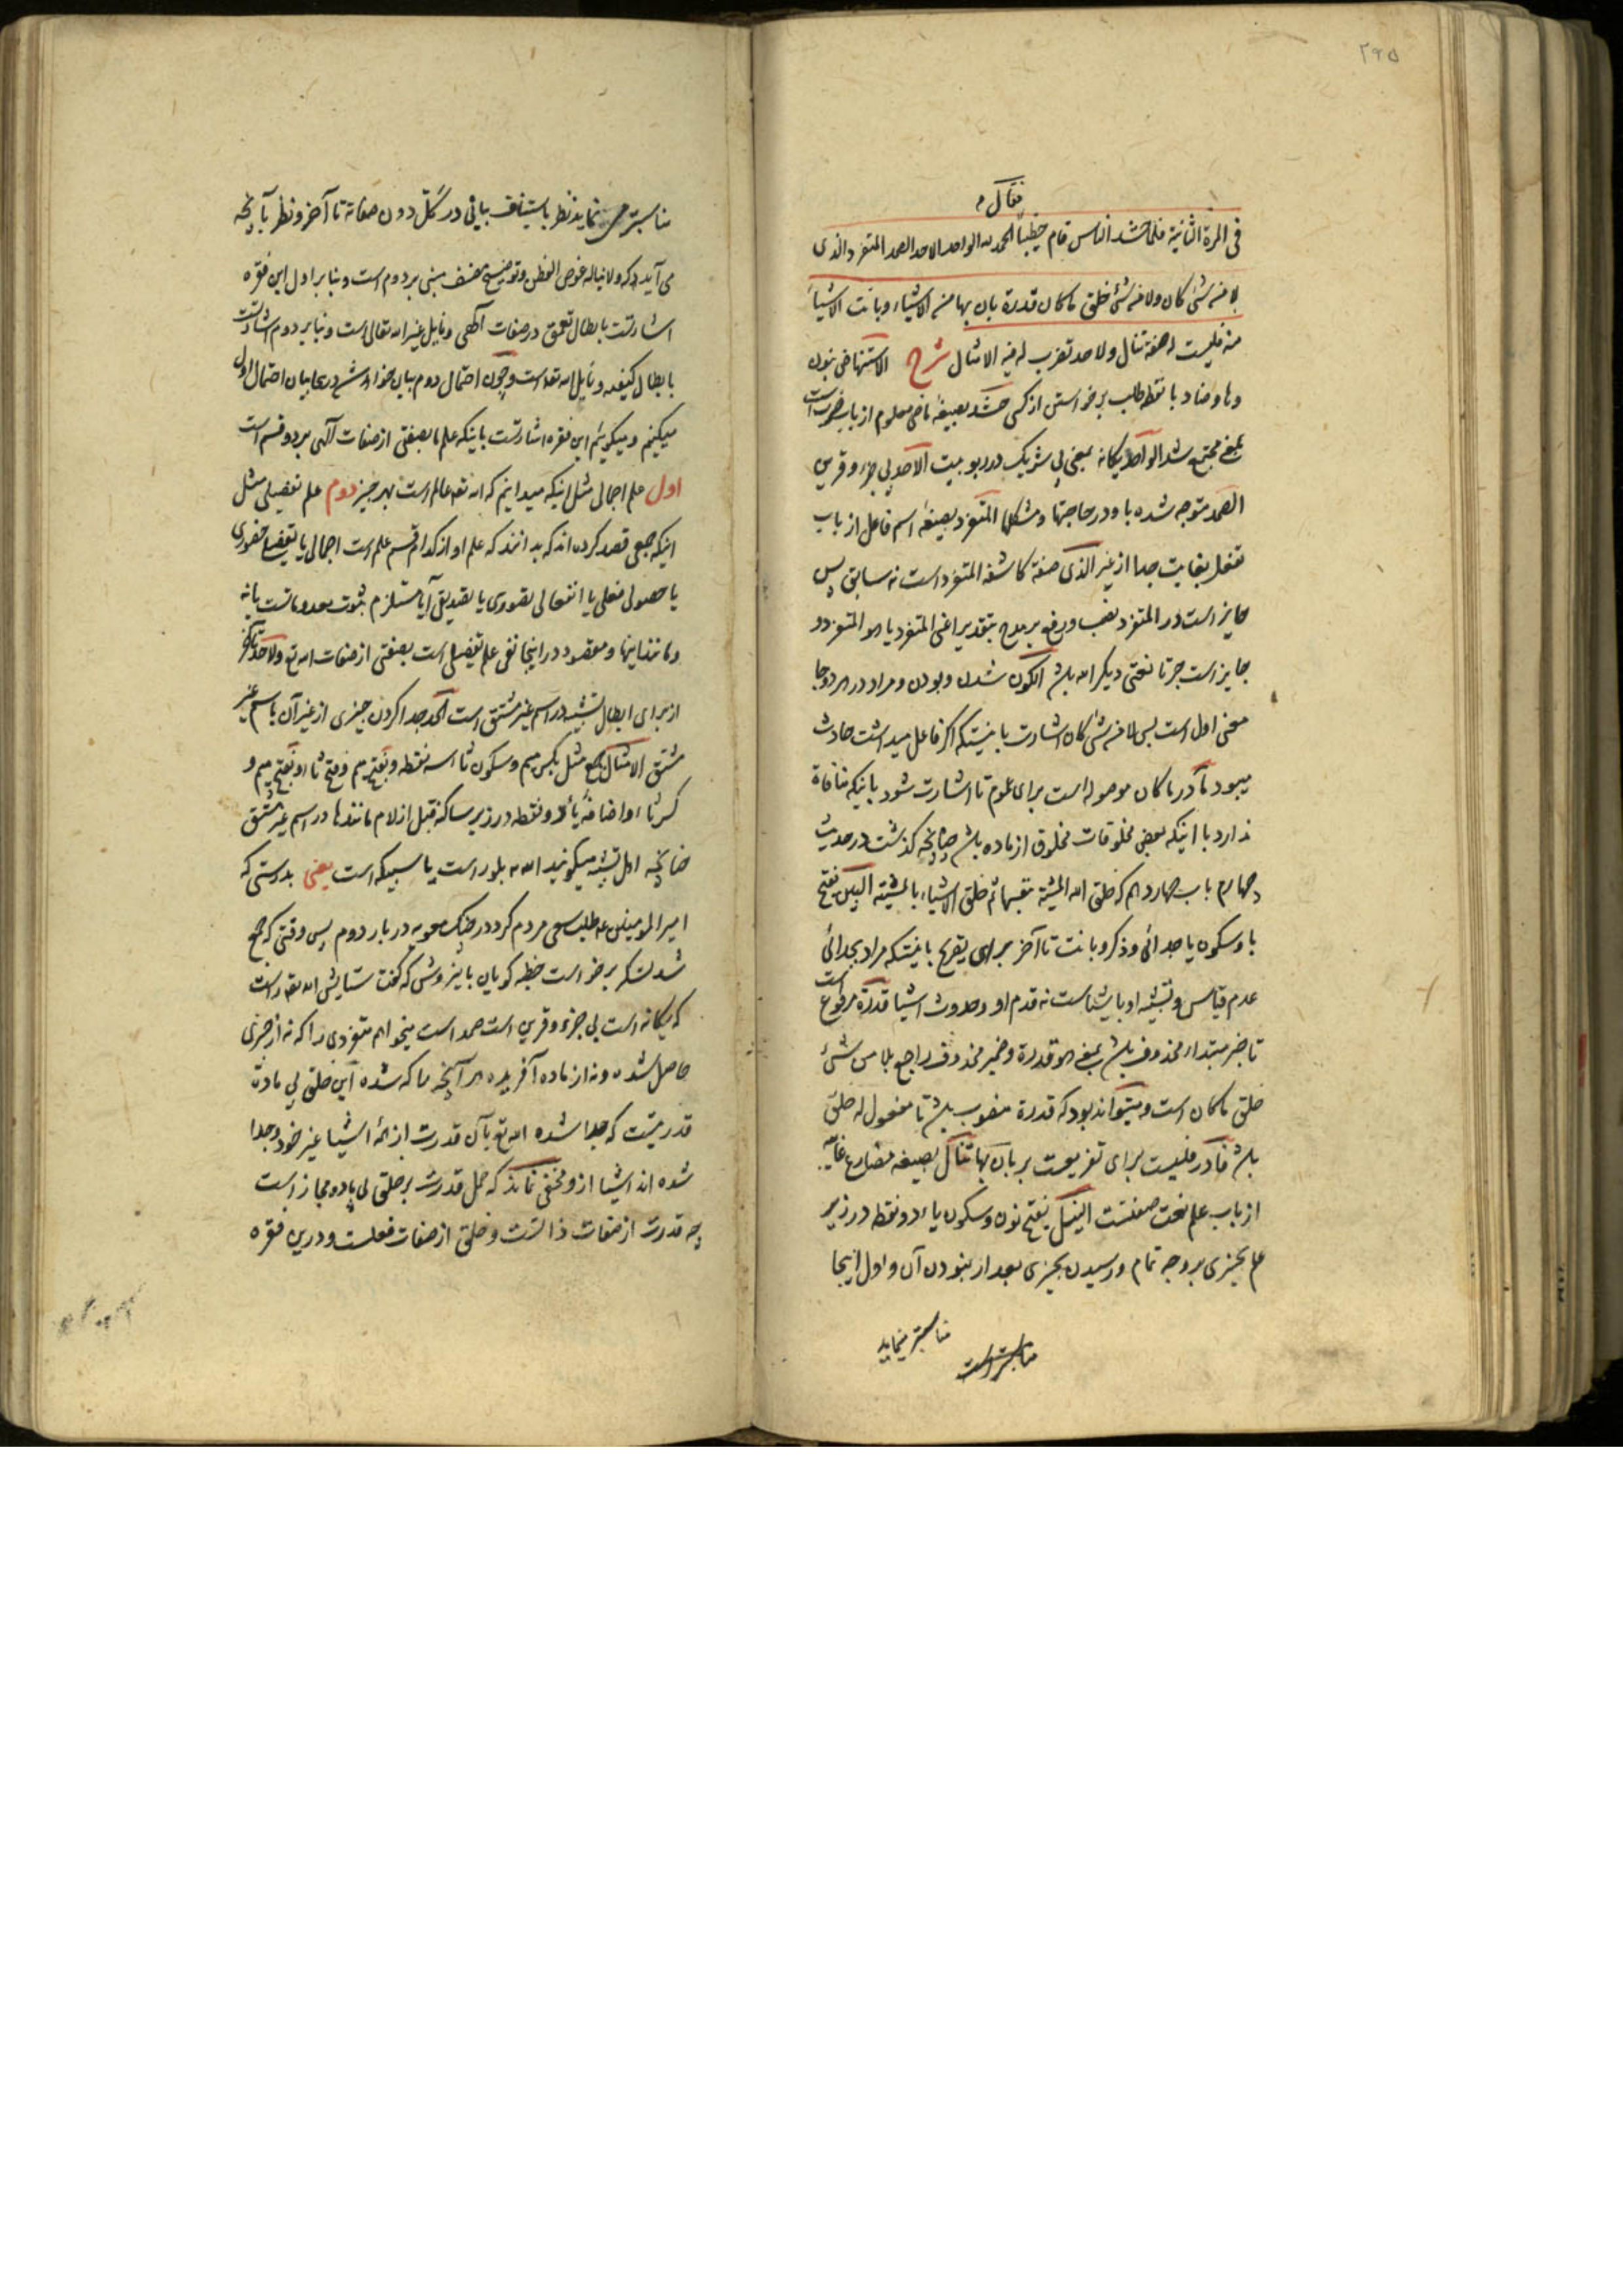 ۲۹۵
فقال م
فی المرة الثانیة فلما حشد الناس قام خطیباً الحمد لله الواحد الاحد الصمد المتفرد الذی
لا من شئ کان ولا من شئ خلق ما کان قدرة بان بها من الاشیاء وبانت الاشیاء
منه فلیست له صفة تنال ولا حد تضرب له فیه الامثال شرح الاستنهاض بنون
وها وضاد با نقطه طلب برخواستن از کسی حشد بصیغهٔ ماضی معلوم از باب ضرب است
بمعنی مجتمع شد الواحد یکانه بمعنی بی شریک در ربوبیت الاحد بی جزء و قرین
الصمد متوجه شده باو در حاجتها و مشکلها المتفرد بصیغهٔ اسم فاعل از باب
تفعل بغایت جدا از غیر الذی صفة کاشفه المتفرد است نه سابق پس
جایز است در المتفرد نصب و رفع بر مدح بتقدیر اعنی المتفرد یا هو المتفرد و
جایز است جر تا نعتی دیکر الله باشد الکون شدن و بودن و مراد در هر دو جا
معنی اول است پس لا من شئ کان اشارت باینستکه اکر فاعل میداشت حادث
میبود ما در ما کان موصوله است برای عموم تا اشارت شود باینکه منافاة
ندارد با اینکه بعض مخلوقات مخلوق از ماده باشد چنانچه کذشت در حدیث
چهارم باب چهاردهم که خلق الله المشیة بنفسها ثم خلق الاشیاء بالمشیة البین بفتح
با و سکون یا جدائی و ذکر و بانت تا آخر برای تصریح باینستکه مراد بجدائی
عدم قیاس و تشبیه او باشیاست نه قدم او و حدوث اشیا قدرة مرفوع است
تا خبر مبتداء محذوف باشد بمعنی هو قدرة و ضمیر محذوف راجع بلا من شئ
خلق ما کان است و میتواند بود که قدرة منصوب باشد تا مفعول له خلق
باشد فا در فلیست برای تفریعست بر بان بها تنال بصیغه مضارع غایبه
از باب علم نعت صفتست النیل بفتح نون و سکون یاء دو نقطه در زیر
علم بچیزی بر وجه تمام و رسیدن بچیزی بعد از نبودن آن و اول اینجا
مناسبتر مینماید
مناسبتر است
مناسبتر می نماید نظر باستیناف بیانی در کل دون صفاته تا آخر و نظر بآنچه
می آید که ولا یناله غوص الفطن و توضیح مصنف مبنی بر دوم است و بنا بر اول این فقره
اشارتست بابطال تعمق در صفات آلهی و نایل غیر الله تعالی است و بنا بر دوم اشارتست
بابطال کیفیه و نایل الله تعه است و چون احتمال دوم بیان خواهد شد درینجا بیان احتمال اول
میکنیم و میکوئیم این فقره اشارتست باینکه علم ما بصفتی از صفات آلهی بر دو قسم است
اول علم اجمالی مثل اینکه میدانیم که الله تعه عالم است بهر چیز دوم علم تفصیلی مثل
اینکه جمعی قصد کرده اند که بدانند که علم او از کدام قسم علم است اجمالی یا تفصیلی حضوری
یا حصولی فعلی یا انفعالی تصوری یا تصدیق آیا مستلزم ثبوت معدوماتست یا نه
و مانند اینها و مقصود در اینجا نفی علم تفصیلی است بصفتی از صفات الله تع ولا حد تا آخر
از برای ابطال تشبیه در اسم غیر مشتق است الحد جدا کردن چیزی از غیر آن باسم غیر
مشتق الامثال جمع مثل بکسر میم و سکون ثاء سه نقطه و بفتح میم و فتح ثاء و بفتح میم و
کسر ثاء و اضافهٔ یاء دو نقطه در زیر ساکنه قبل از لام مانندها در اسم غیر مشتق
چنانچه اهل تشبیه میکویند الله بلور است یا سبیکه است یعنی بدرستی که
امیر المومنین عه طلب سعی مردم کرد در جنک معویه در بار دوم پس وقتی که جمع
شد لشکر برخواست خطبه کویان باینروش که کفت ستایش الله تعه راست
که یکانه است بی جزء و قرین است صمد است میخواهم متفردی را که نه از چیزی
حاصل شده و نه از ماده آفریده هر آنچه را که شده این خلق بی ماده
قدرتیست که جدا شده الله تع بآن قدرت از همهٔ اشیا غیر خود و جدا
شده اند اشیا ازو مخفی نماند که حمل قدرت بر خلق بی ماده مجاز است
چه قدرت از صفات ذاتست و خلق از صفات فعلست و درین فقره